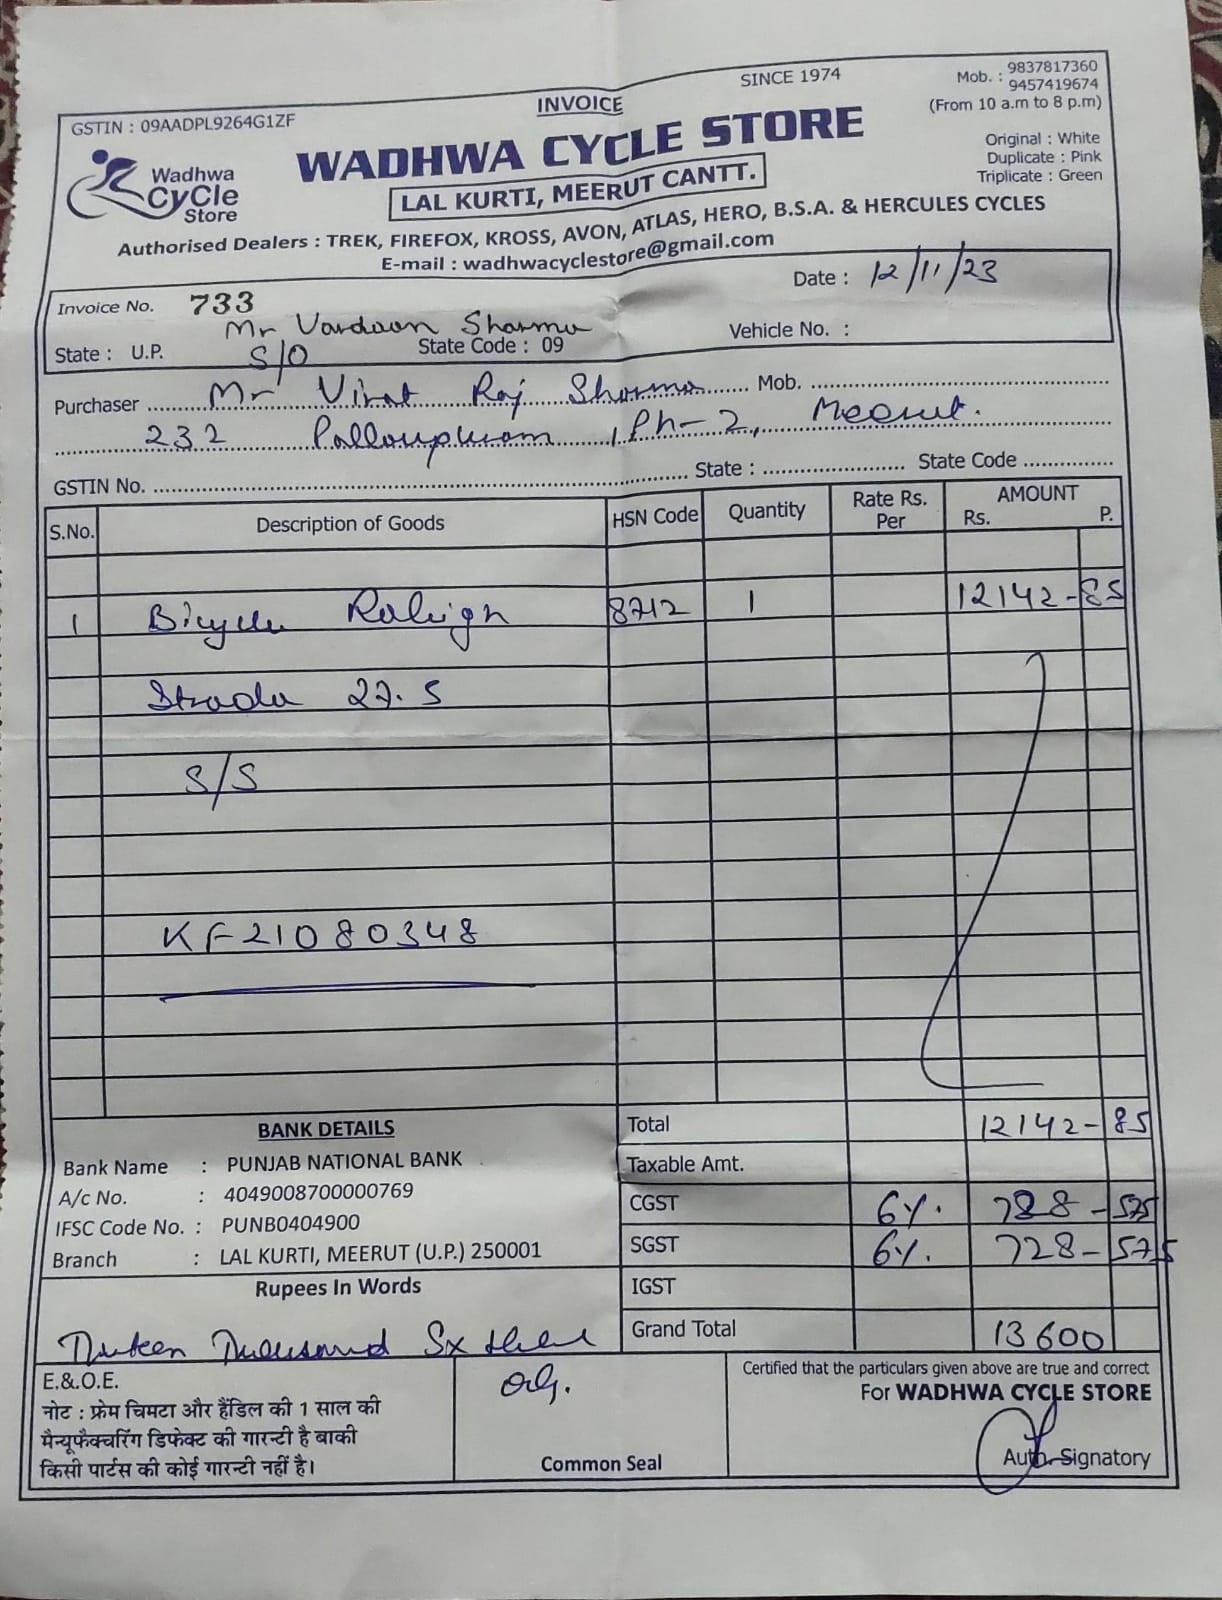 SINCE 1974
Mob. : 9837817360
9457419674
(From 10 a.m to 8 p.m)
INVOICE
GSTIN : 09AADPL9264G1ZF
Original : White
Duplicate : Pink
Triplicate : Green
Wadhwa
CyCle
Store
WADHWA CYCLE STORE
LAL KURTI, MEERUT CANTT.
Authorised Dealers : TREK, FIREFOX, KROSS, AVON, ATLAS, HERO, B.S.A. & HERCULES CYCLES
E-mail : wadhwacyclestore@gmail.com
Invoice No. 733
Date : 12/11/23
Mr Vardaan Sharma
State : U.P. S/O State Code : 09
Vehicle No. :
Purchaser Mr Virat Raj Sharma Mob.
232 Pallavpuram, Ph-2, Meerut.
GSTIN No. State : State Code
S.No. Description of Goods HSN Code Quantity Rate Rs. Per AMOUNT Rs. P.
1 Bicycle Raleigh 8712 1 12142-85
Strada 27.5
S/S
KF21080348
Total 12142-85
Taxable Amt.
CGST 6%. 728-575
SGST 6%. 728-575
IGST
Grand Total 13600
BANK DETAILS
Bank Name : PUNJAB NATIONAL BANK
A/c No. : 4049008700000769
IFSC Code No. : PUNB0404900
Branch : LAL KURTI, MEERUT (U.P.) 250001
Rupees In Words
Thirteen Thousand Six
E.&.O.E.
नोट : फ्रेम चिमटा और हैंडिल की 1 साल की
मैन्यूफैक्चरिंग डिफेक्ट की गारन्टी है बाकी
किसी पार्टस की कोई गारन्टी नहीं है।
only.
Common Seal
Certified that the particulars given above are true and correct
For WADHWA CYCLE STORE
Auth. Signatory